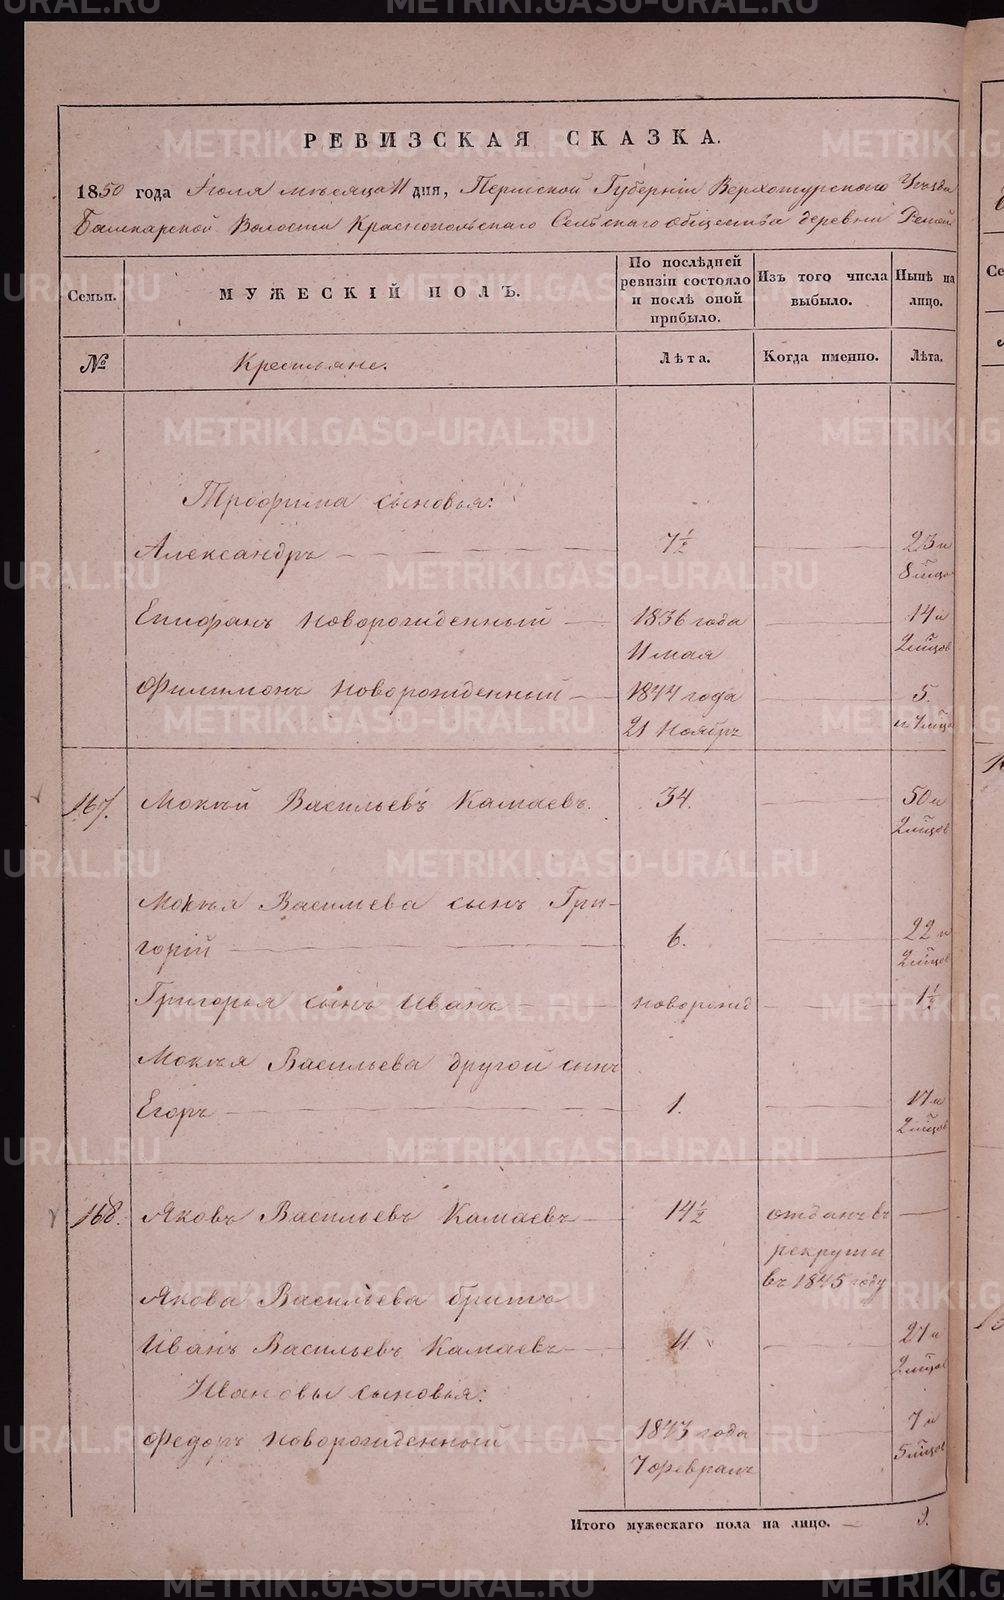 РЕВИЗСКАЯ СКАЗКА.
1850 года Июля месяца 11 дня, Пермской Губернiи Верхотурскаго Уезда
Башкарской Волости Краснопольскаго Сельскаго общества деревни
Семьи.
МУЖЕСКІЙ ПОЛЪ.
По послѣдней ревизіи состояло и послѣ оной прибыло.
Изъ того числа выбыло.
Нынѣ на лицо.
№
Крестьяне.
Лѣта.
Когда именно.
Лѣта.
Трофима сыновья:
Александръ — 7½ — 23 и
8 мцов
Епифанъ новорожденный — 1836 года — 14 и
11 мая 2 мцов
Филимонъ новорожденный — 1844 года — 5
21 Ноябр и 7 мцов
167. Мокѣй Васильевъ Камаевъ. 34. — 50 и
2 мцов
Мокѣя Васильева сынъ Гри-
горій — 6. — 22 и
2 мцов
Григорья сынъ Иванъ — новорожд — 1½
Мокѣя Васильева другой сынъ
Егоръ — 1. — 17 и
2 мцов
168. Яковъ Васильевъ Камаевъ — 14½ отданъ въ —
рекруты
въ 1845 году
Якова Васильева братъ
Иванъ Васильевъ Камаевъ — 11. — 27 и
2 мцов
Ивановы сыновья:
Федоръ новорожденный — 1843 года — 7 и
7 февраля 5 мцов
Итого мужескаго пола на лицо. — 9.
METRIKI.GASO-URAL.RU